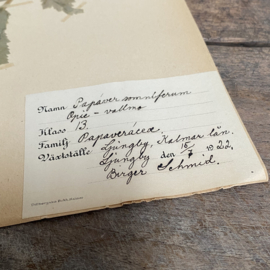 Namn: Papáver somniferum
Opie-vallmo
Klass 13.
Familj Papaveráceæ.
Växtställe: Ljungby, Kalmar län.
Ljungby den 15/7 1922.
Birger Schmid.